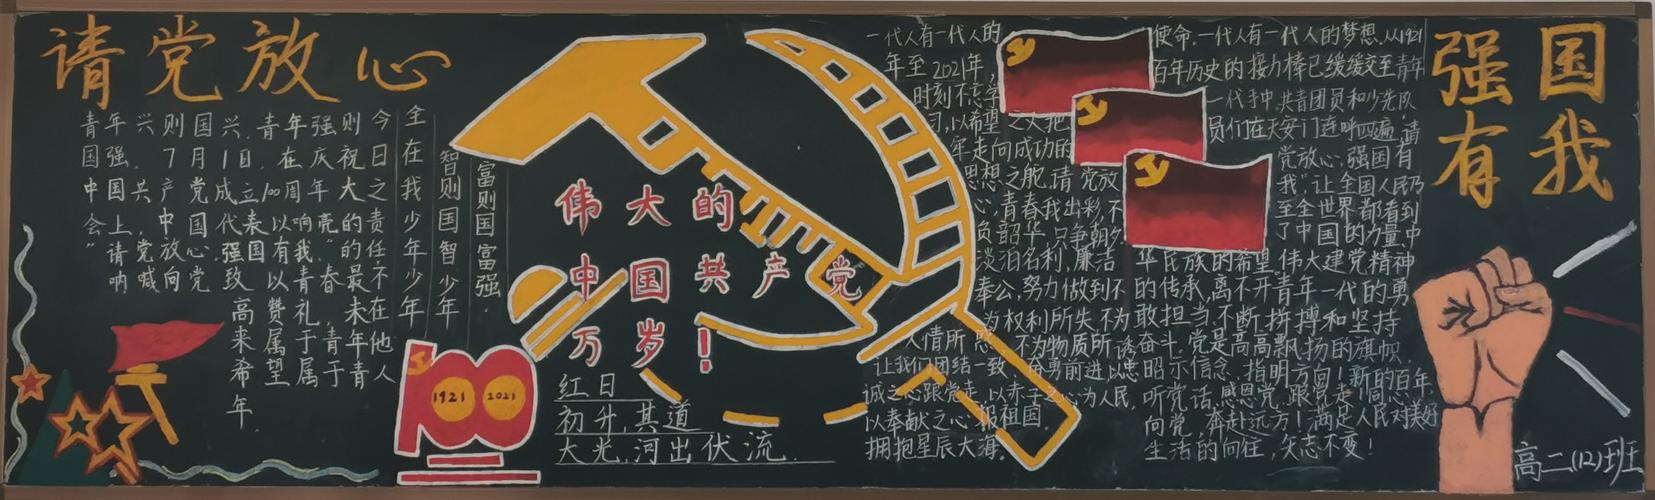 请党放心
青年兴则国兴,青年强则
国强。7月1日,在庆祝
中国共产党成立100周年大
会"上,中国代表以响亮的
"请党放心,强国有我"的
呐喊向党致以青春的最
高礼赞,未
来属于青年,
希望属于青
年。
今日之责任不在他人
全在我少年少年
智则国智少年
富则国富强
1921 2021
伟大的
中国共产党
万岁!
红日
初升,其道
大光,河出伏流.
一代人有一代人的使命,一代人有一代人的梦想,从1921
年至2021年,百年历史的接力棒已缓缓交至青年
一代手中,共青团员和少先队
员们在天安门连呼四遍"请
党放心,强国有
我",让全国人民乃
至全世界都看到
了中国的力量,中
华民族的希望。伟大建党精神
的传承,离不开青年一代的勇
敢担当,不断拼搏和坚持
奋斗.党是高高飘扬的旗帜,
昭示信念,指明方向!新的百年,
听党话,感恩党,跟党走!
向党,奔赴远方!满足人民对美好
生活的向往,矢志不变!
时刻不忘学
习,以希望之火把
年走向成功的
思想之舵.请党放
心,青春我出彩,不
负韶华只争朝夕.
淡泊名利,廉洁
奉公,努力做到不
为权利所失,不为
人情所惑,不为物质所诱
让我们团结一致,奋勇前进,以忠
诚之心跟党走,以赤子之心为人民,
以奉献之心报祖国.
拥抱星辰大海.
强国
有我
高二(12)班